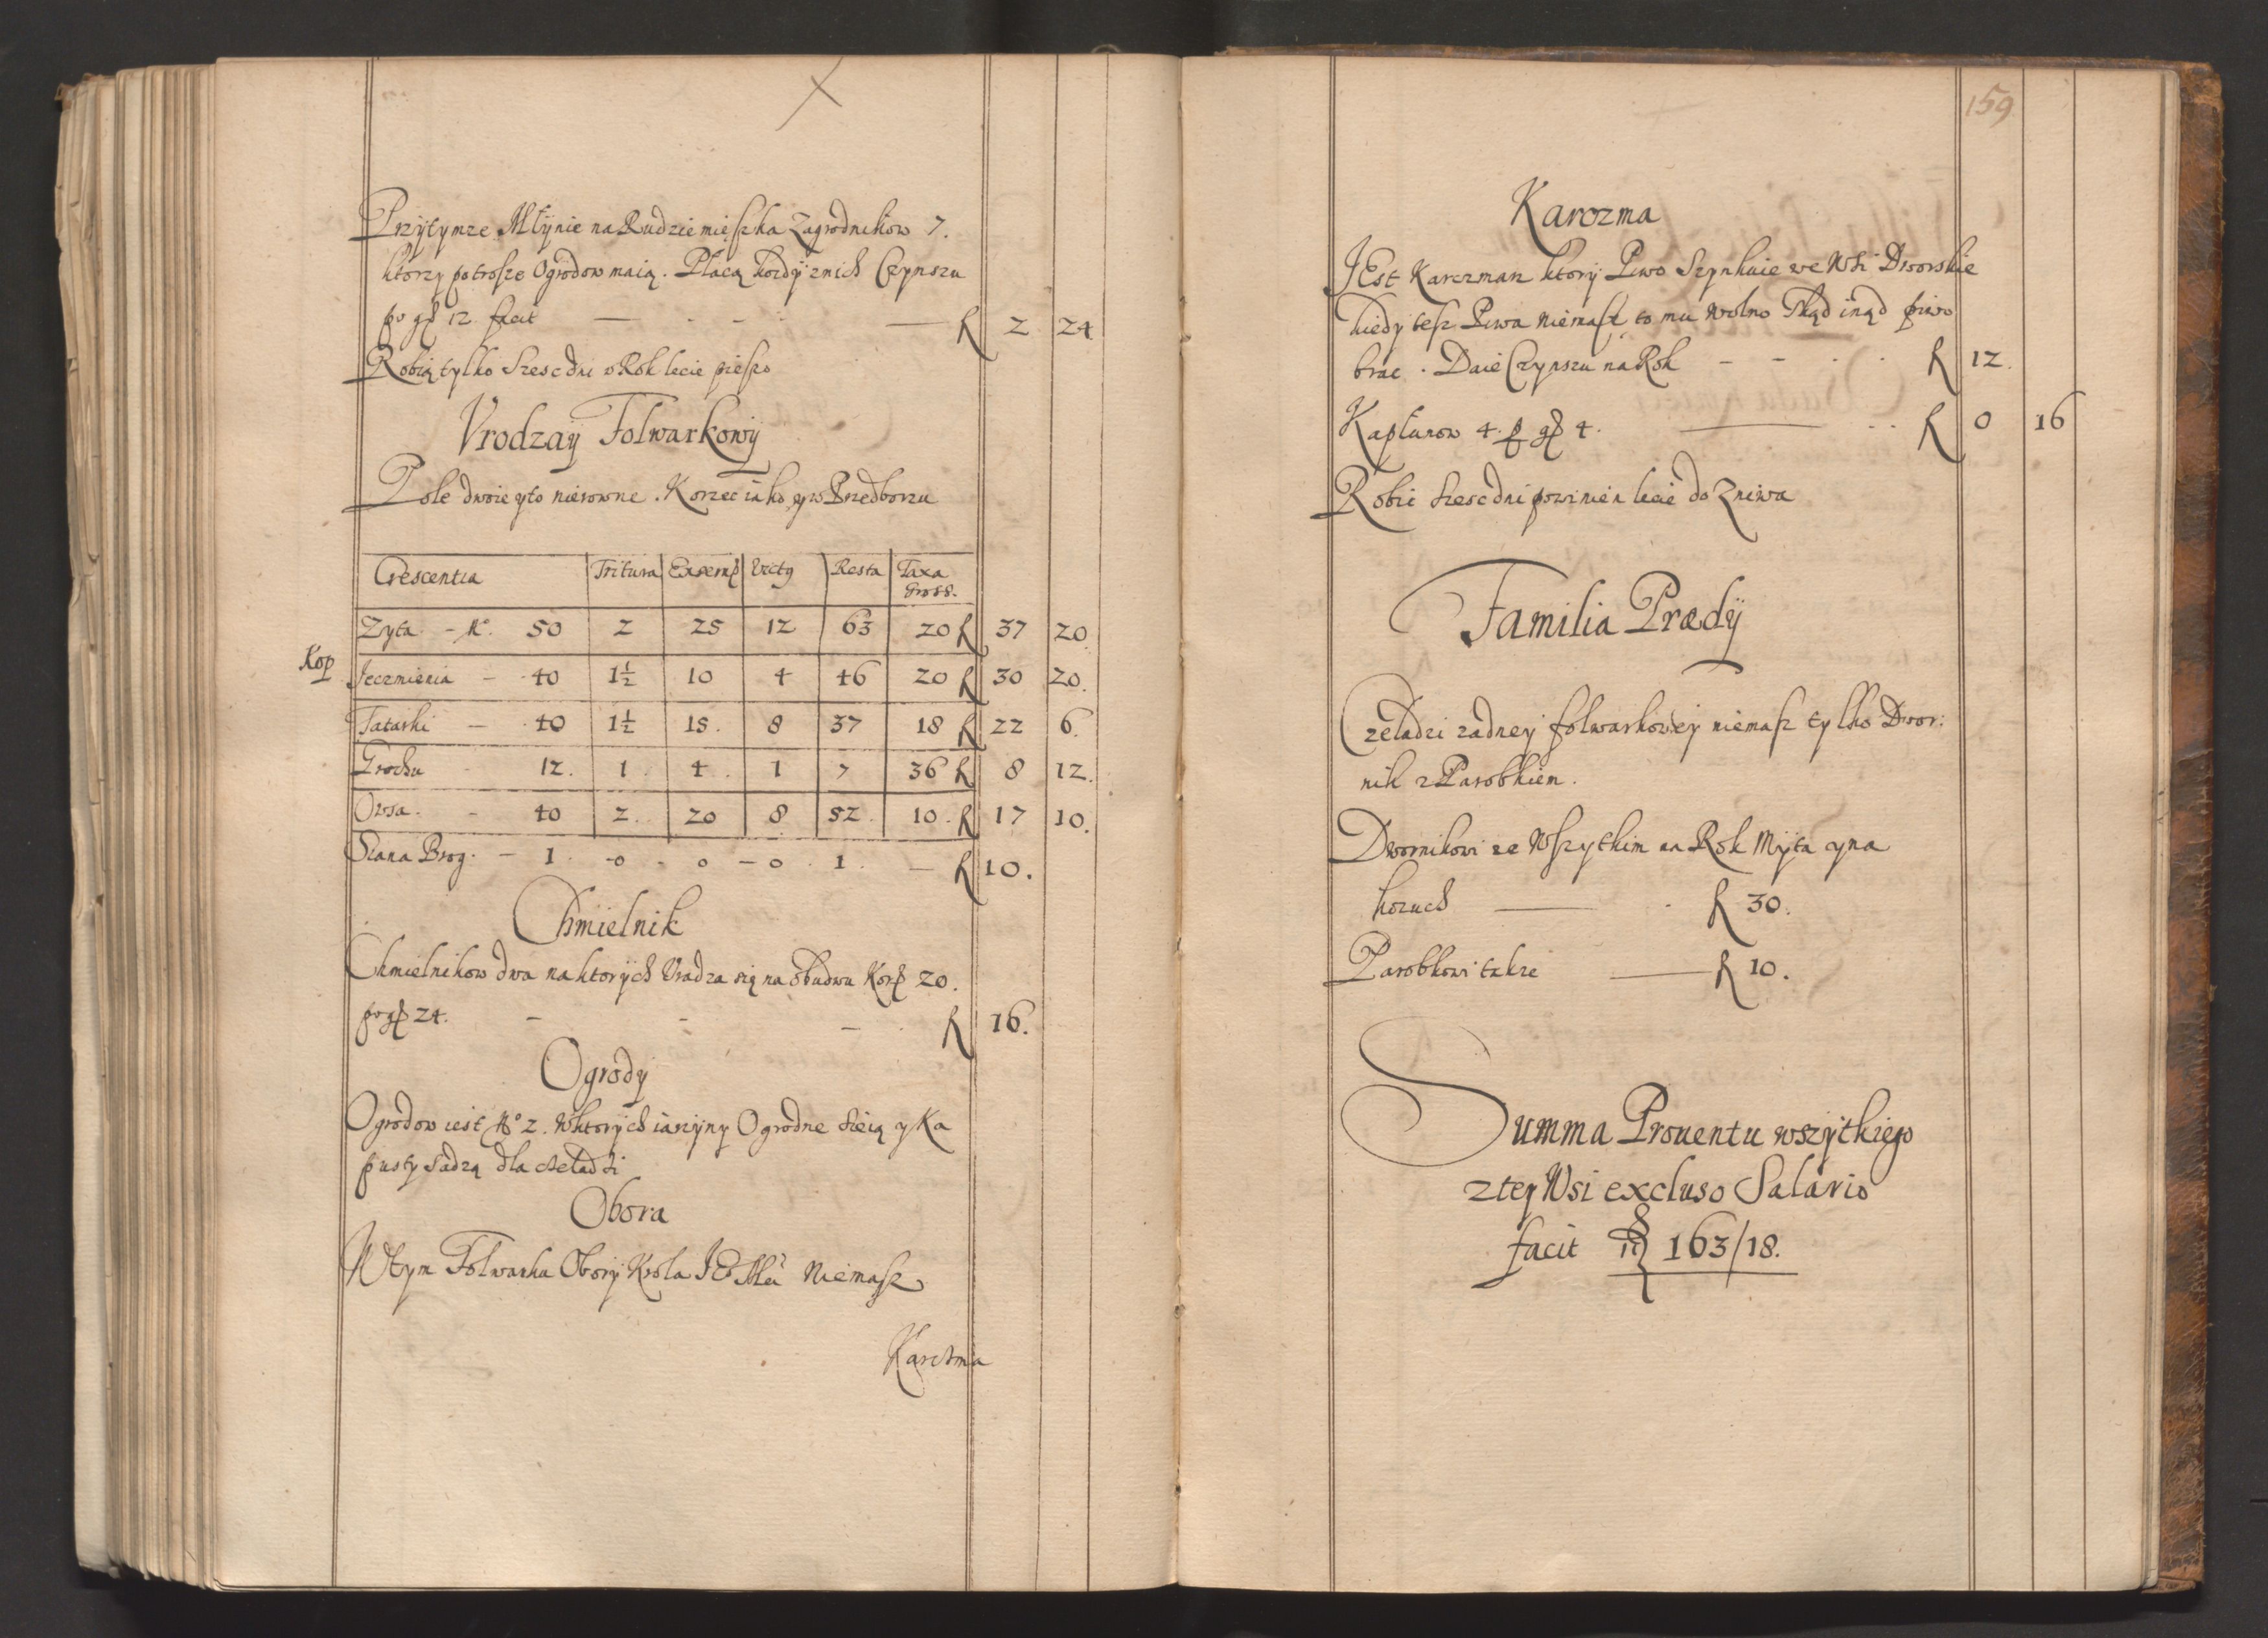 Przÿtymze Młÿnie na Rudzie mięszka Zagrodnikow 7.
ktorzy potrosze Ogrodow maią. Płacą kozdÿ znich Czynszu
po gß 12 facit — - - - — fl 2 24
Robią tylko Szesc dni w Rok lecie pieszo
Vrodzaÿ Folwarkowÿ
Pole dwoie yto nierowne. Korzec iako y w Przedborzu
Crescentia Tritura Exsemß Victq Resta Taxa
Gross.
Zyta. - No. 50 2 25 12 63 20 fl 37 20
Kop
Jeczmienia - 40 1½ 10 4 46 20 fl 30 20.
Tatarki - 40 1½ 15. 8 37 18 fl 22 6.
Grochu - 12. 1. 4. 1 7 36 fl 8 12.
Owsa. - 40 2. 20 8 52. 10. fl 17 10.
Siana Brog. - 1. -0 - 0 - 0. 1. — fl 10.
Chmielnik
Chmielnikow dwa na ktorÿch Vradza się na obudwu Korß 20.
po gß 24. - - - fl 16.
Ogrody
Ogrodow iest No 2. Wktorÿch iarzÿny Ogrodne sieią y Ka
pusty sadzą dla czeladzi
Obora
W tym Folwarku Oborÿ Krola Ieo Mci Niemasz
Karczma
159
Karczma
JEst Karczmarz ktorÿ Piwo Szynkuie we Wsi Dworskie
kiedy tesz Piwa niemasz to mu wolno Skąd inąd piwo
brac. Daie Czynszu na Rok - - . . fl 12.
Kapłunow 4. p gß 4. — . . fl 0 16
Robic szesc dni powinien lecie do Zniwa
Familia Prædÿ
Czeladzi zadneÿ folwarkoweÿ niemasz tylko Dwor:
nik z Parobkiem.
Dwornikowi ze Wszytkim na Rok Mÿta y na
kozuch — . fl 30.
Parobkowi takze — fl 10.
Summa Prouentu wszÿtkiego
z tey Wsi excluso Salario
facit fl 163/18.